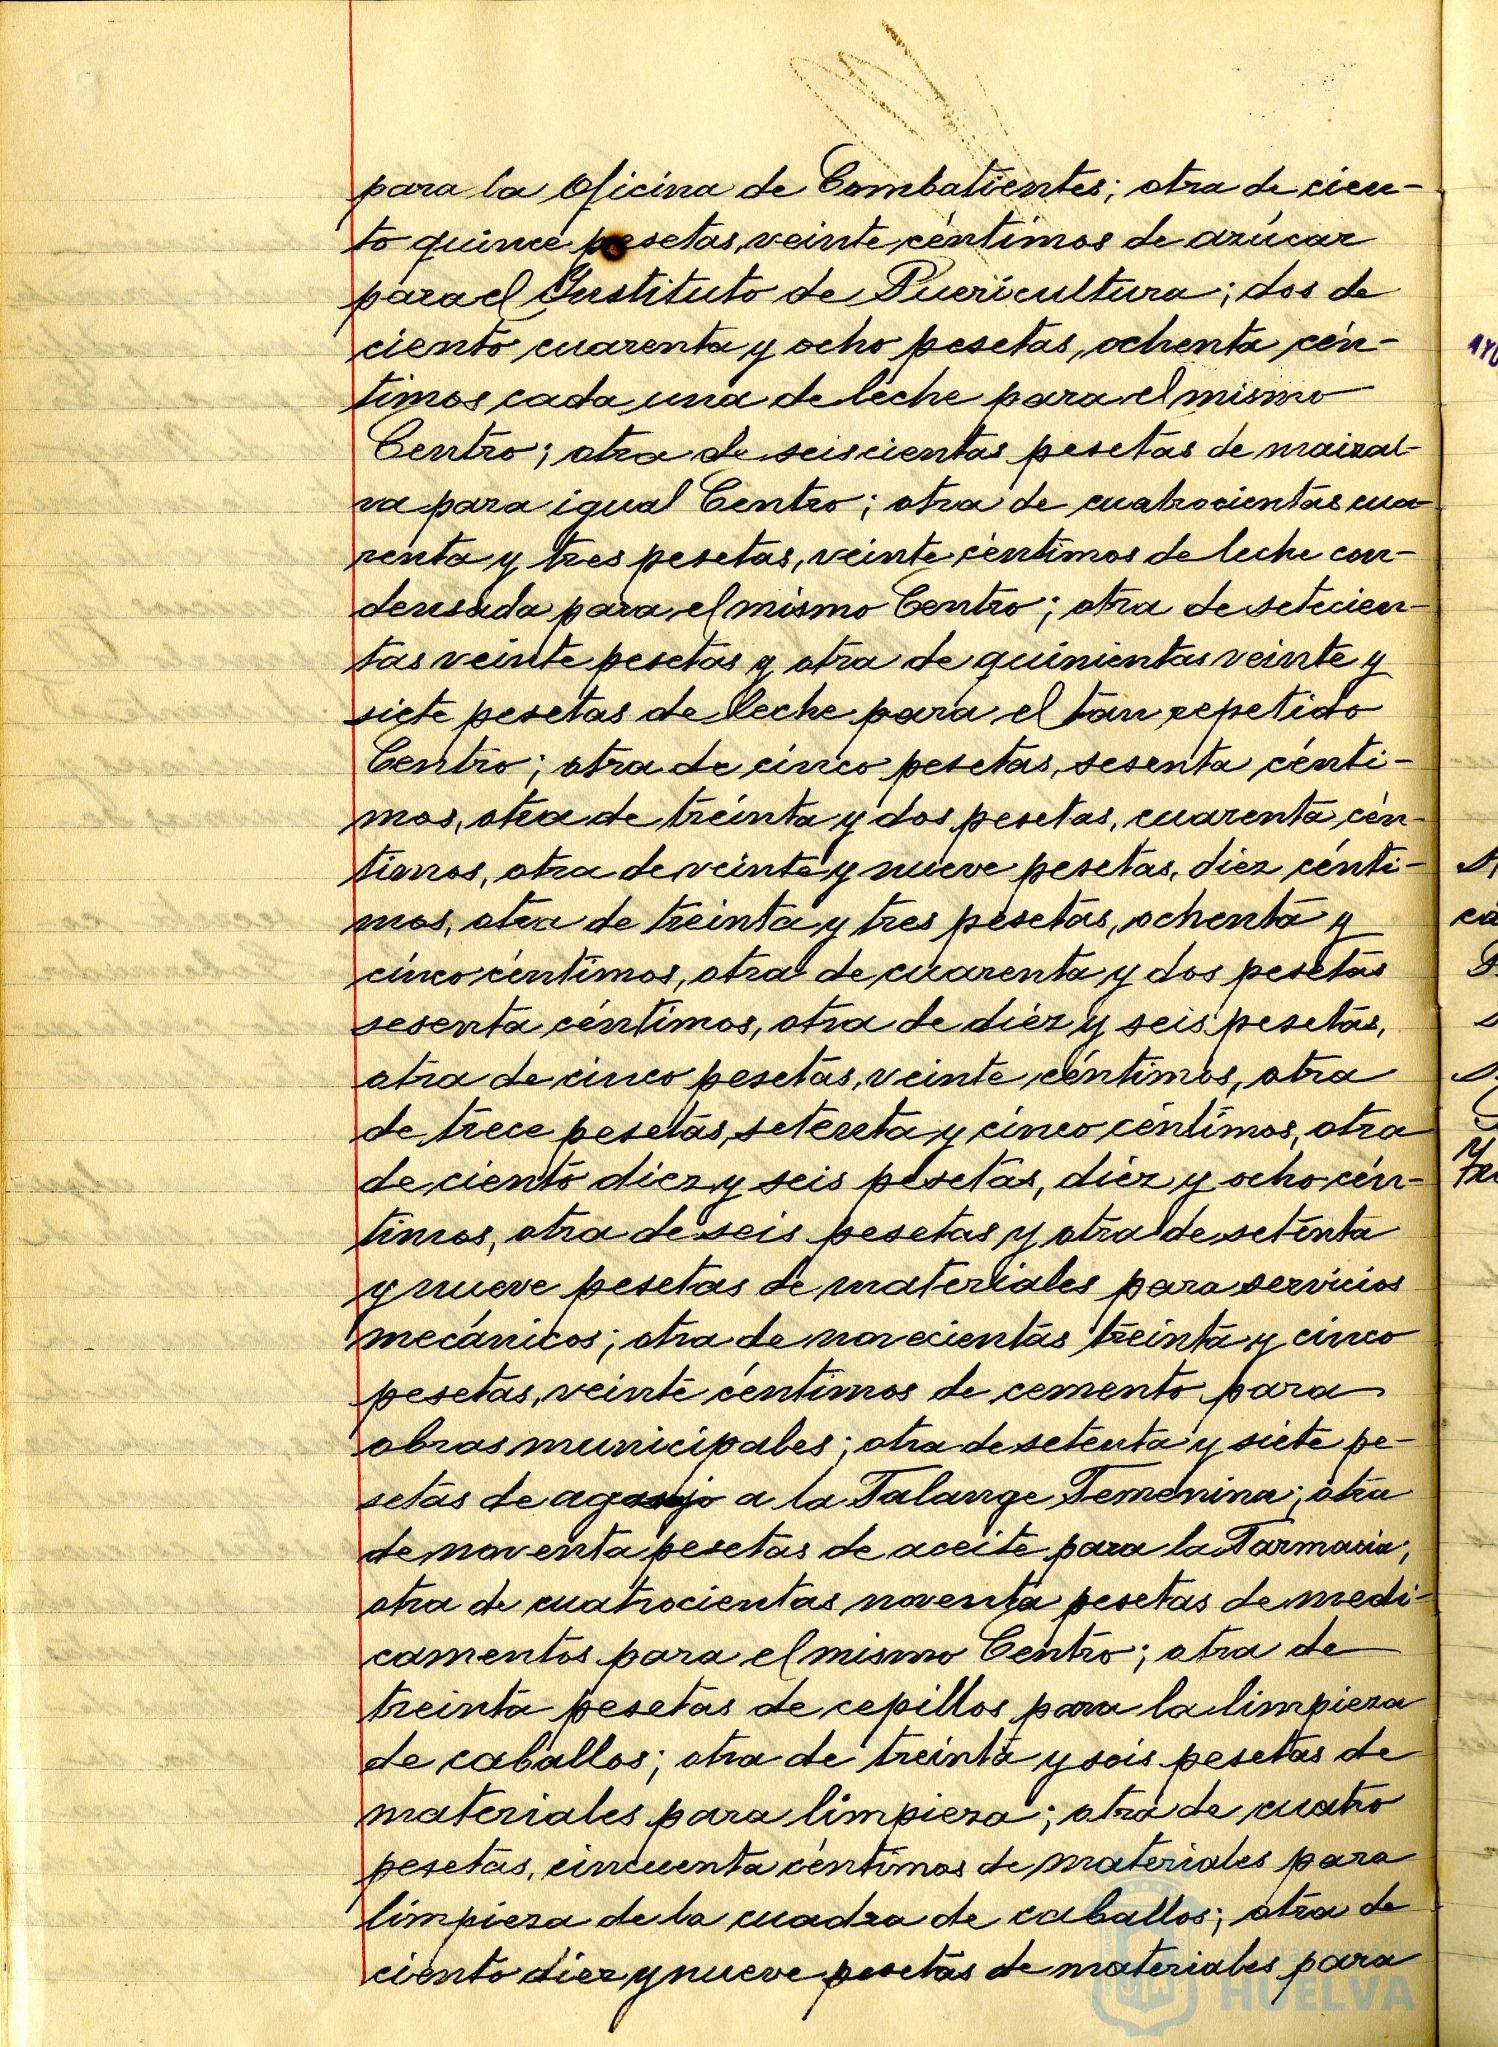 para la Oficina de Combatientes; otra de cien-
to quince pesetas, veinte céntimos de azúcar
para el Instituto de Puericultura; dos de
ciento cuarenta y ocho pesetas, ochenta cén-
timos cada una de leche para el mismo
Centro; otra de seiscientas pesetas de maizal-
va para igual Centro; otra de cuatrocientas cua-
renta y tres pesetas, veinte céntimos de leche con-
densada para el mismo Centro; otra de setecien-
tas veinte pesetas y otra de quinientas veinte y
siete pesetas de leche para el tan repetido
Centro; otra de cinco pesetas, sesenta cénti-
mos, otra de treinta y dos pesetas, cuarenta cén-
timos, otra de veinte y nueve pesetas, diez cénti-
mos, otra de treinta y tres pesetas, ochenta y
cinco céntimos, otra de cuarenta y dos pesetas
sesenta céntimos, otra de diez y seis pesetas,
otra de cinco pesetas, veinte céntimos, otra
de trece pesetas, setenta y cinco céntimos, otra
de ciento diez y seis pesetas, diez y ocho cén-
timos, otra de seis pesetas y otra de setenta
y nueve pesetas de materiales para servicios
mecánicos; otra de novecientas treinta y cinco
pesetas, veinte céntimos de cemento para
obras municipales; otra de setenta y siete pe-
setas de agasajo a la Falange Femenina; otra
de noventa pesetas de aceite para la Farmacia,
otra de cuatrocientas noventa pesetas de medi-
camentos para el mismo Centro; otra de
treinta pesetas de cepillos para la limpieza
de caballos; otra de treinta y seis pesetas de
materiales para limpieza; otra de cuatro
pesetas, cincuenta céntimos de materiales para
limpieza de la cuadra de caballos; otra de
ciento diez y nueve pesetas de materiales para
HUELVA